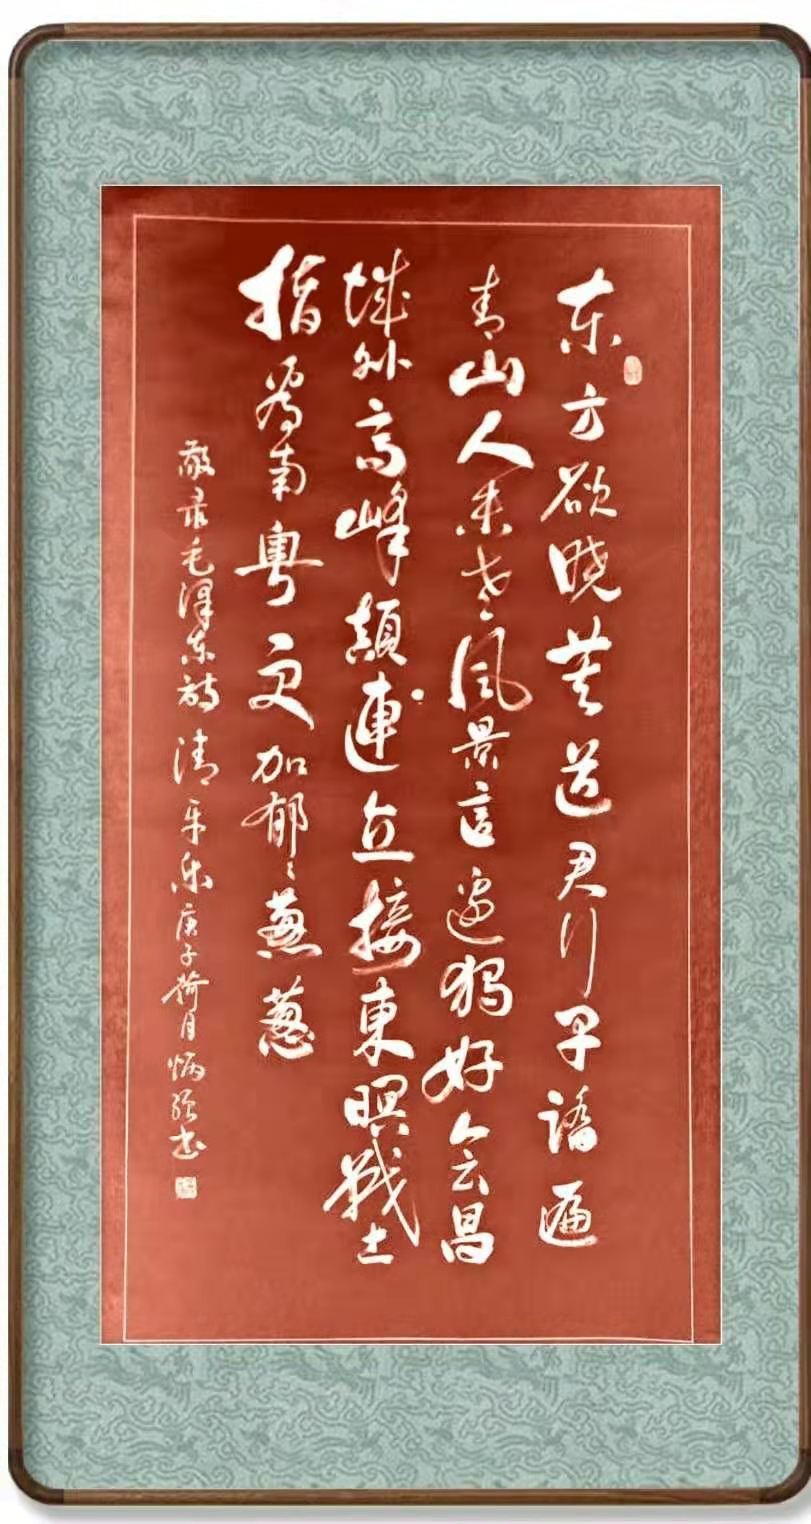 东方欲晓莫道君行早踏遍
青山人未老风景這邊獨好会昌
城外高峰顛連直接東暝戰士
指看南粤更加郁〻葱葱
敬录毛泽东诗清平乐庚子荷月炳强书